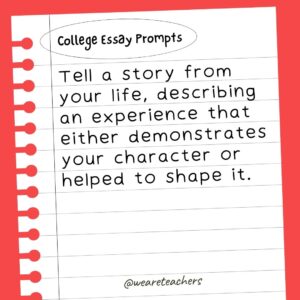 College Essay Prompts
Tell a story from
your life, describing
an experience that
either demonstrates
your character or
helped to shape it.
@weareteachers